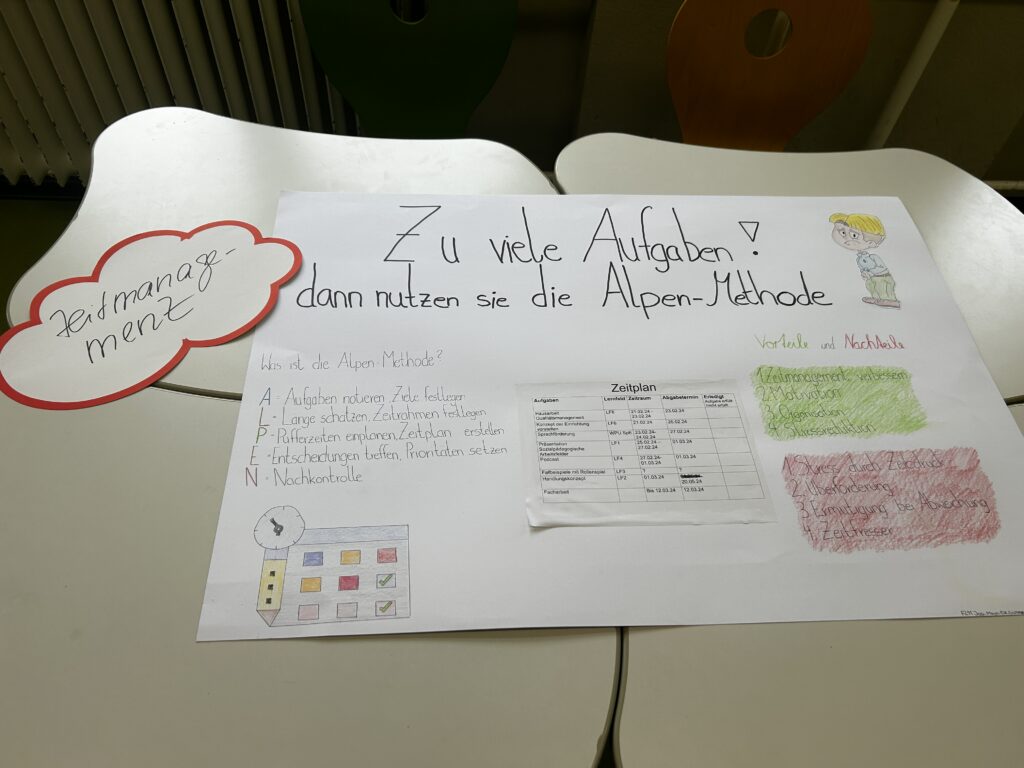 Zeitmanage-
ment
Zu viele Aufgaben!
dann nutzen sie die Alpen-Methode
Was ist die Alpen-Methode?
A - Aufgaben notieren, Ziele festlegen
L - Länge schätzen, Zeitrahmen festlegen
P - Pufferzeiten einplanen, Zeitplan erstellen
E - Entscheidungen treffen, Prioritäten setzen
N - Nachkontrolle
Zeitplan
Aufgaben Lernfeld Zeitraum Abgabetermin Erledigt
Hausarbeit Qualitätsmanagement LF6 21.02.24 - 23.02.24 23.02.24
Konzept der Einrichtung vorstellen LF6 21.02.24 26.02.24
Sprachförderung 27.02.24
Präsentation Sozialpädagogische Arbeitsfelder LF1 01.03.24
Podcast LF4 27.02.24- 01.03.24 01.03.24
Fallbeispiele mit Rollenspiel LF3 ? ?
Handlungskonzept LF2 01.03.24 20.05.24
Facharbeit Bis 12.03.24 12.03.24
Vorteile und Nachteile
1. Zeitmanagement verbessern
2. Motivation
3. Organisation
4. Stressreduktion
1. Stress durch Zeitdruck
2. Überforderung
3. Ermutigung bei Abweichung
4. Zeitfresser